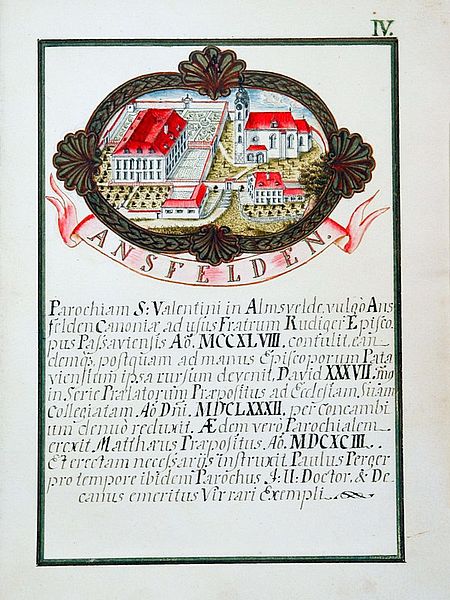 IV.
ANSFELDEN.
Parochiam S: Valentini in Almsvelde, vulgò Ans
felden Canoniæ, ad usus Fratrum Rudiger Episco,
pus Passaviensis Aō. MCCXLVIII, contulit, ean
demq;, postquam ad manus Episcoporum Pata
viensium ipsa rursum devenit, David XXXVII. mo
in Serie Prælatorum Præpositus ad Ecclesiam Suam
Collegiatam Aō Dñi. MDCLXXXII, per concambi
um denuò reduxit. Ædem verò Parochialem
erexit Matthæus Præpositus Aō. MDCXCIII..
Et erectam necessarijs instruxit Paulus Perger
pro tempore ibidem Parochus J: U: Doctor, & De
canus emeritus Vir rari Exempli.